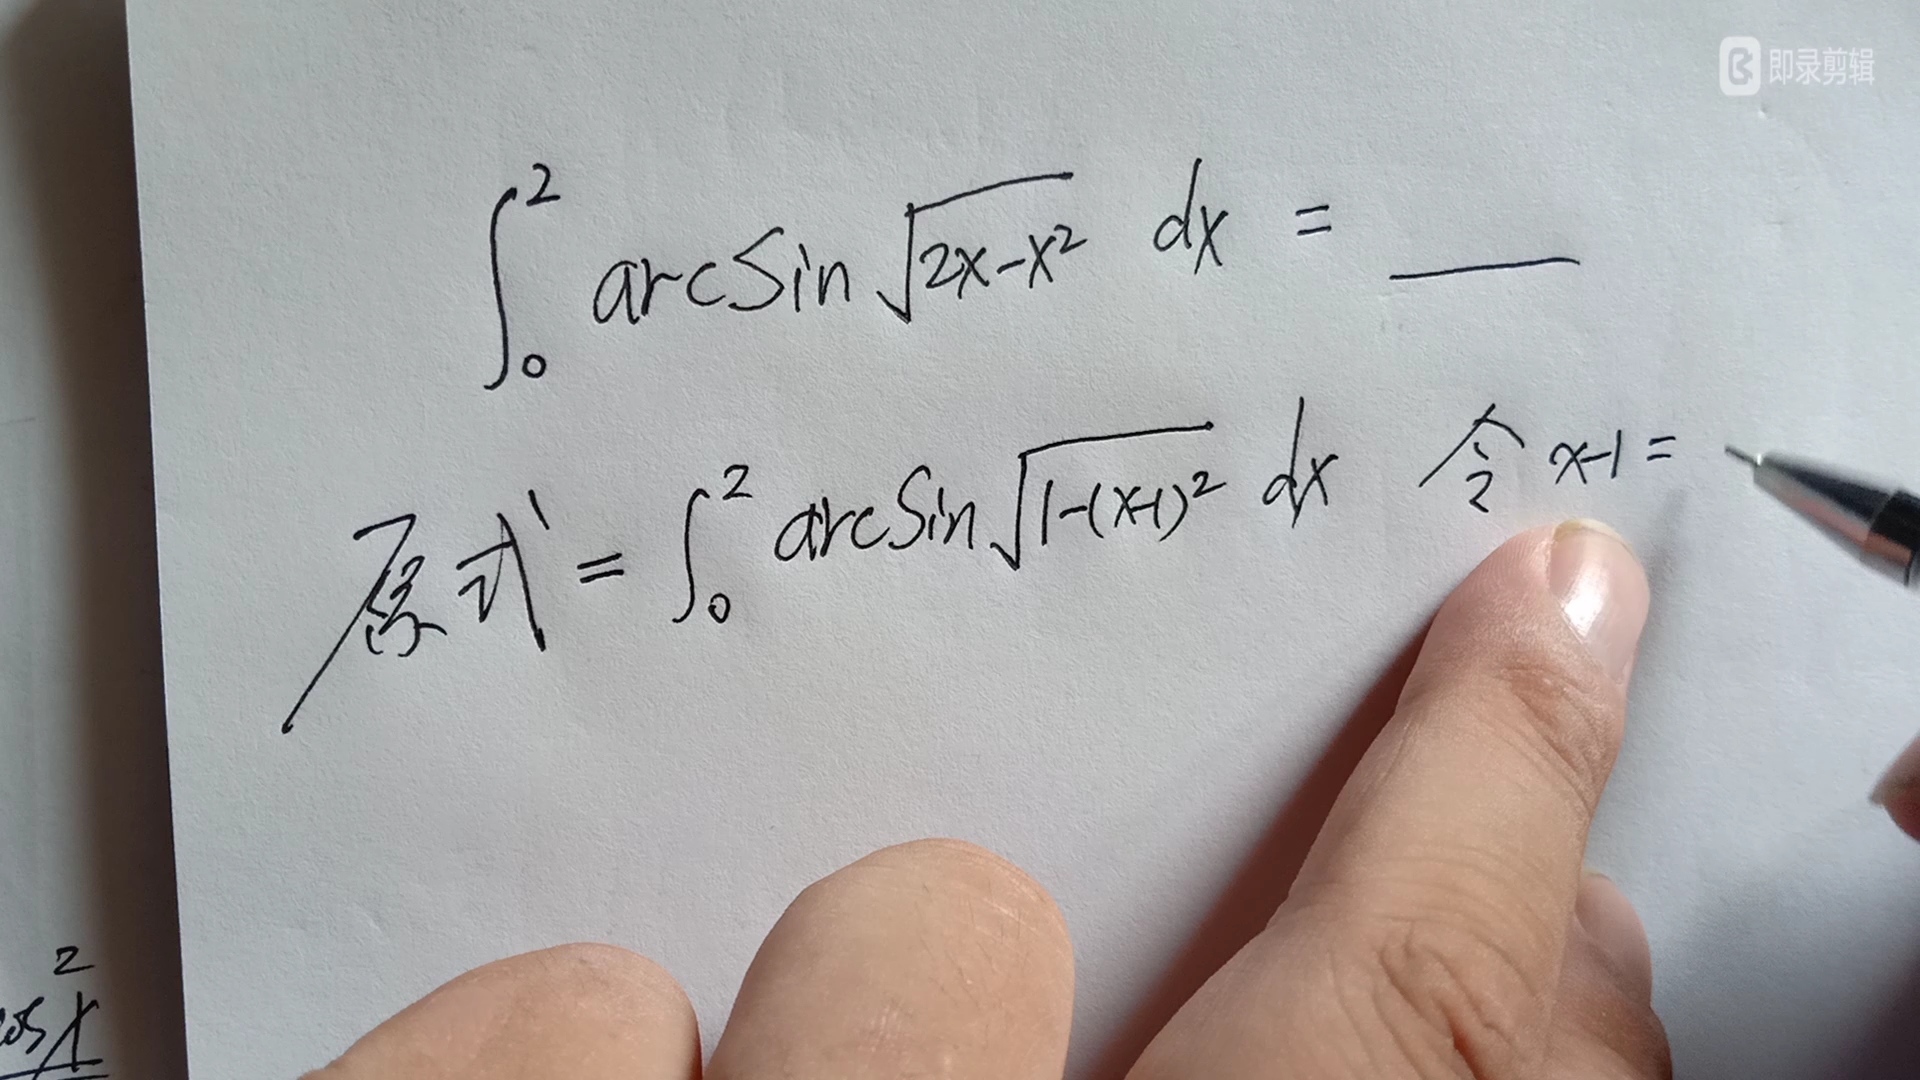 即录剪辑
∫₀² arcsin √(2x-x²) dx = ____
原式 = ∫₀² arcsin √(1-(x-1)²) dx 令 x-1 =
2
os x